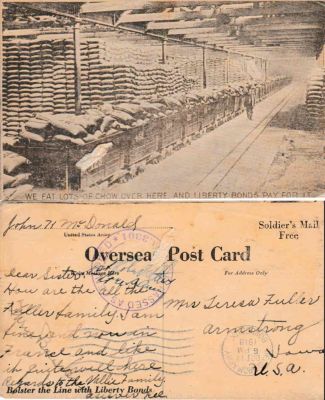 WE EAT LOTS OF CHOW OVER HERE AND LIBERTY BONDS PAY FOR IT
John H McDonald
United States Army
Soldier's Mail
Free
Oversea Post Card
For Address Only
Dear Sister
How are the
Fuller Family. I am
fine and now in
France and like
it quite well here
Regards to the Family
Mrs Teresa Fuller
Armstrong
Iowa
U.S.A.
1918
Bolster the Line with Liberty Bonds